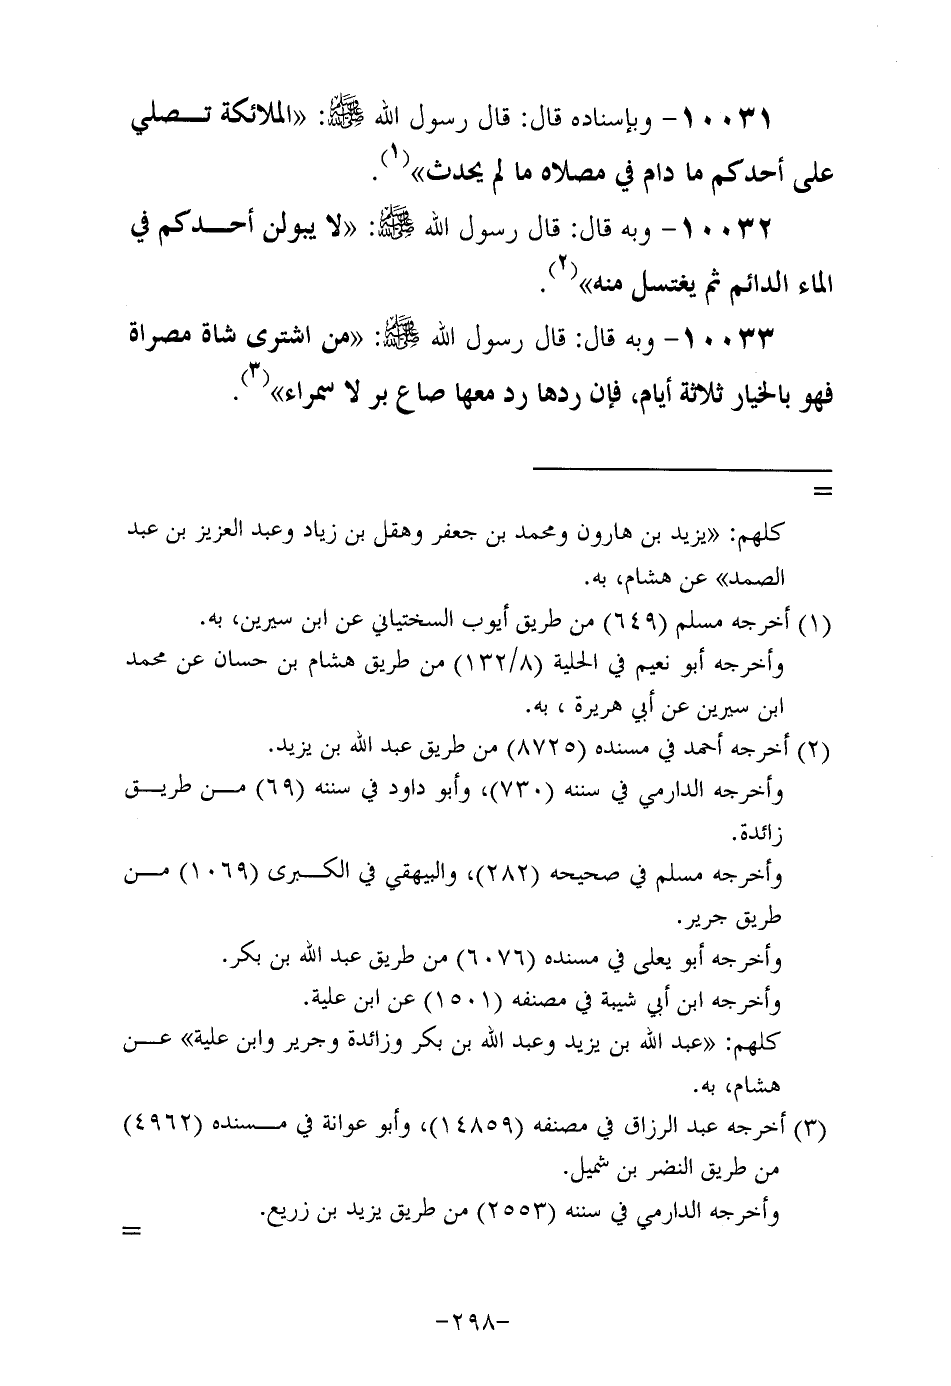 ١٠٠٣١- وبإسناده قال: قال رسول الله ﷺ: «الملائكة تـصلي
على أحدكم ما دام في مصلاه ما لم يحدث»(١).
١٠٠٣٢- وبه قال: قال رسول الله ﷺ: «لا يبولن أحـدكم في
الماء الدائم ثم يغتسل منه»(٢).
١٠٠٣٣- وبه قال: قال رسول الله ﷺ: «من اشترى شاة مصراة
فهو بالخيار ثلاثة أيام، فإن ردها رد معها صاع بر لا سمراء»(٣).
=
كلهم: «يزيد بن هارون ومحمد بن جعفر وهقل بن زياد وعبد العزيز بن عبد
الصمد» عن هشام، به.
(١) أخرجه مسلم (٦٤٩) من طريق أيوب السختياني عن ابن سيرين، به.
وأخرجه أبو نعيم في الحلية (١٣٢/٨) من طريق هشام بن حسان عن محمد
ابن سيرين عن أبي هريرة ، به.
(٢) أخرجه أحمد في مسنده (٨٧٢٥) من طريق عبد الله بن يزيد.
وأخرجه الدارمي في سننه (٧٣٠)، وأبو داود في سننه (٦٩) مـن طريـق
زائدة.
وأخرجه مسلم في صحيحه (٢٨٢)، والبيهقي في الكـبرى (١٠٦٩) مـن
طريق جرير.
وأخرجه أبو يعلى في مسنده (٦٠٧٦) من طريق عبد الله بن بكر.
وأخرجه ابن أبي شيبة في مصنفه (١٥٠١) عن ابن علية.
كلهم: «عبد الله بن يزيد وعبد الله بن بكر وزائدة وجرير وابن علية» عـن
هشام، به.
(٣) أخرجه عبد الرزاق في مصنفه (١٤٨٥٩)، وأبو عوانة في مـسنده (٤٩٦٢)
من طريق النضر بن شميل.
وأخرجه الدارمي في سننه (٢٥٥٣) من طريق يزيد بن زريع.
=
-٢٩٨-